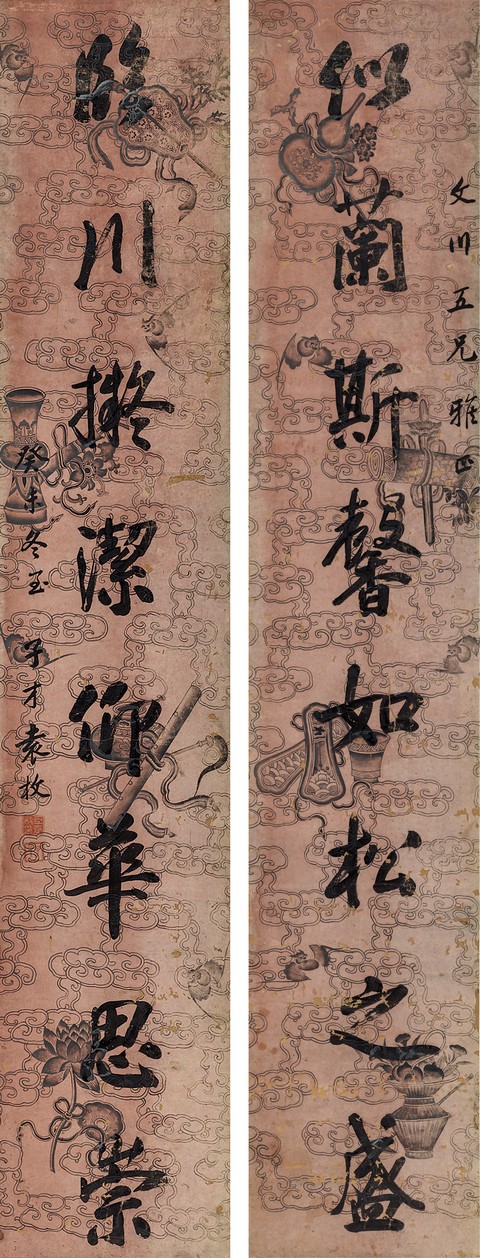 文川五兄雅正
似蘭斯馨如松之盛
臨川擬潔仰華思崇
癸未冬至子才袁枚